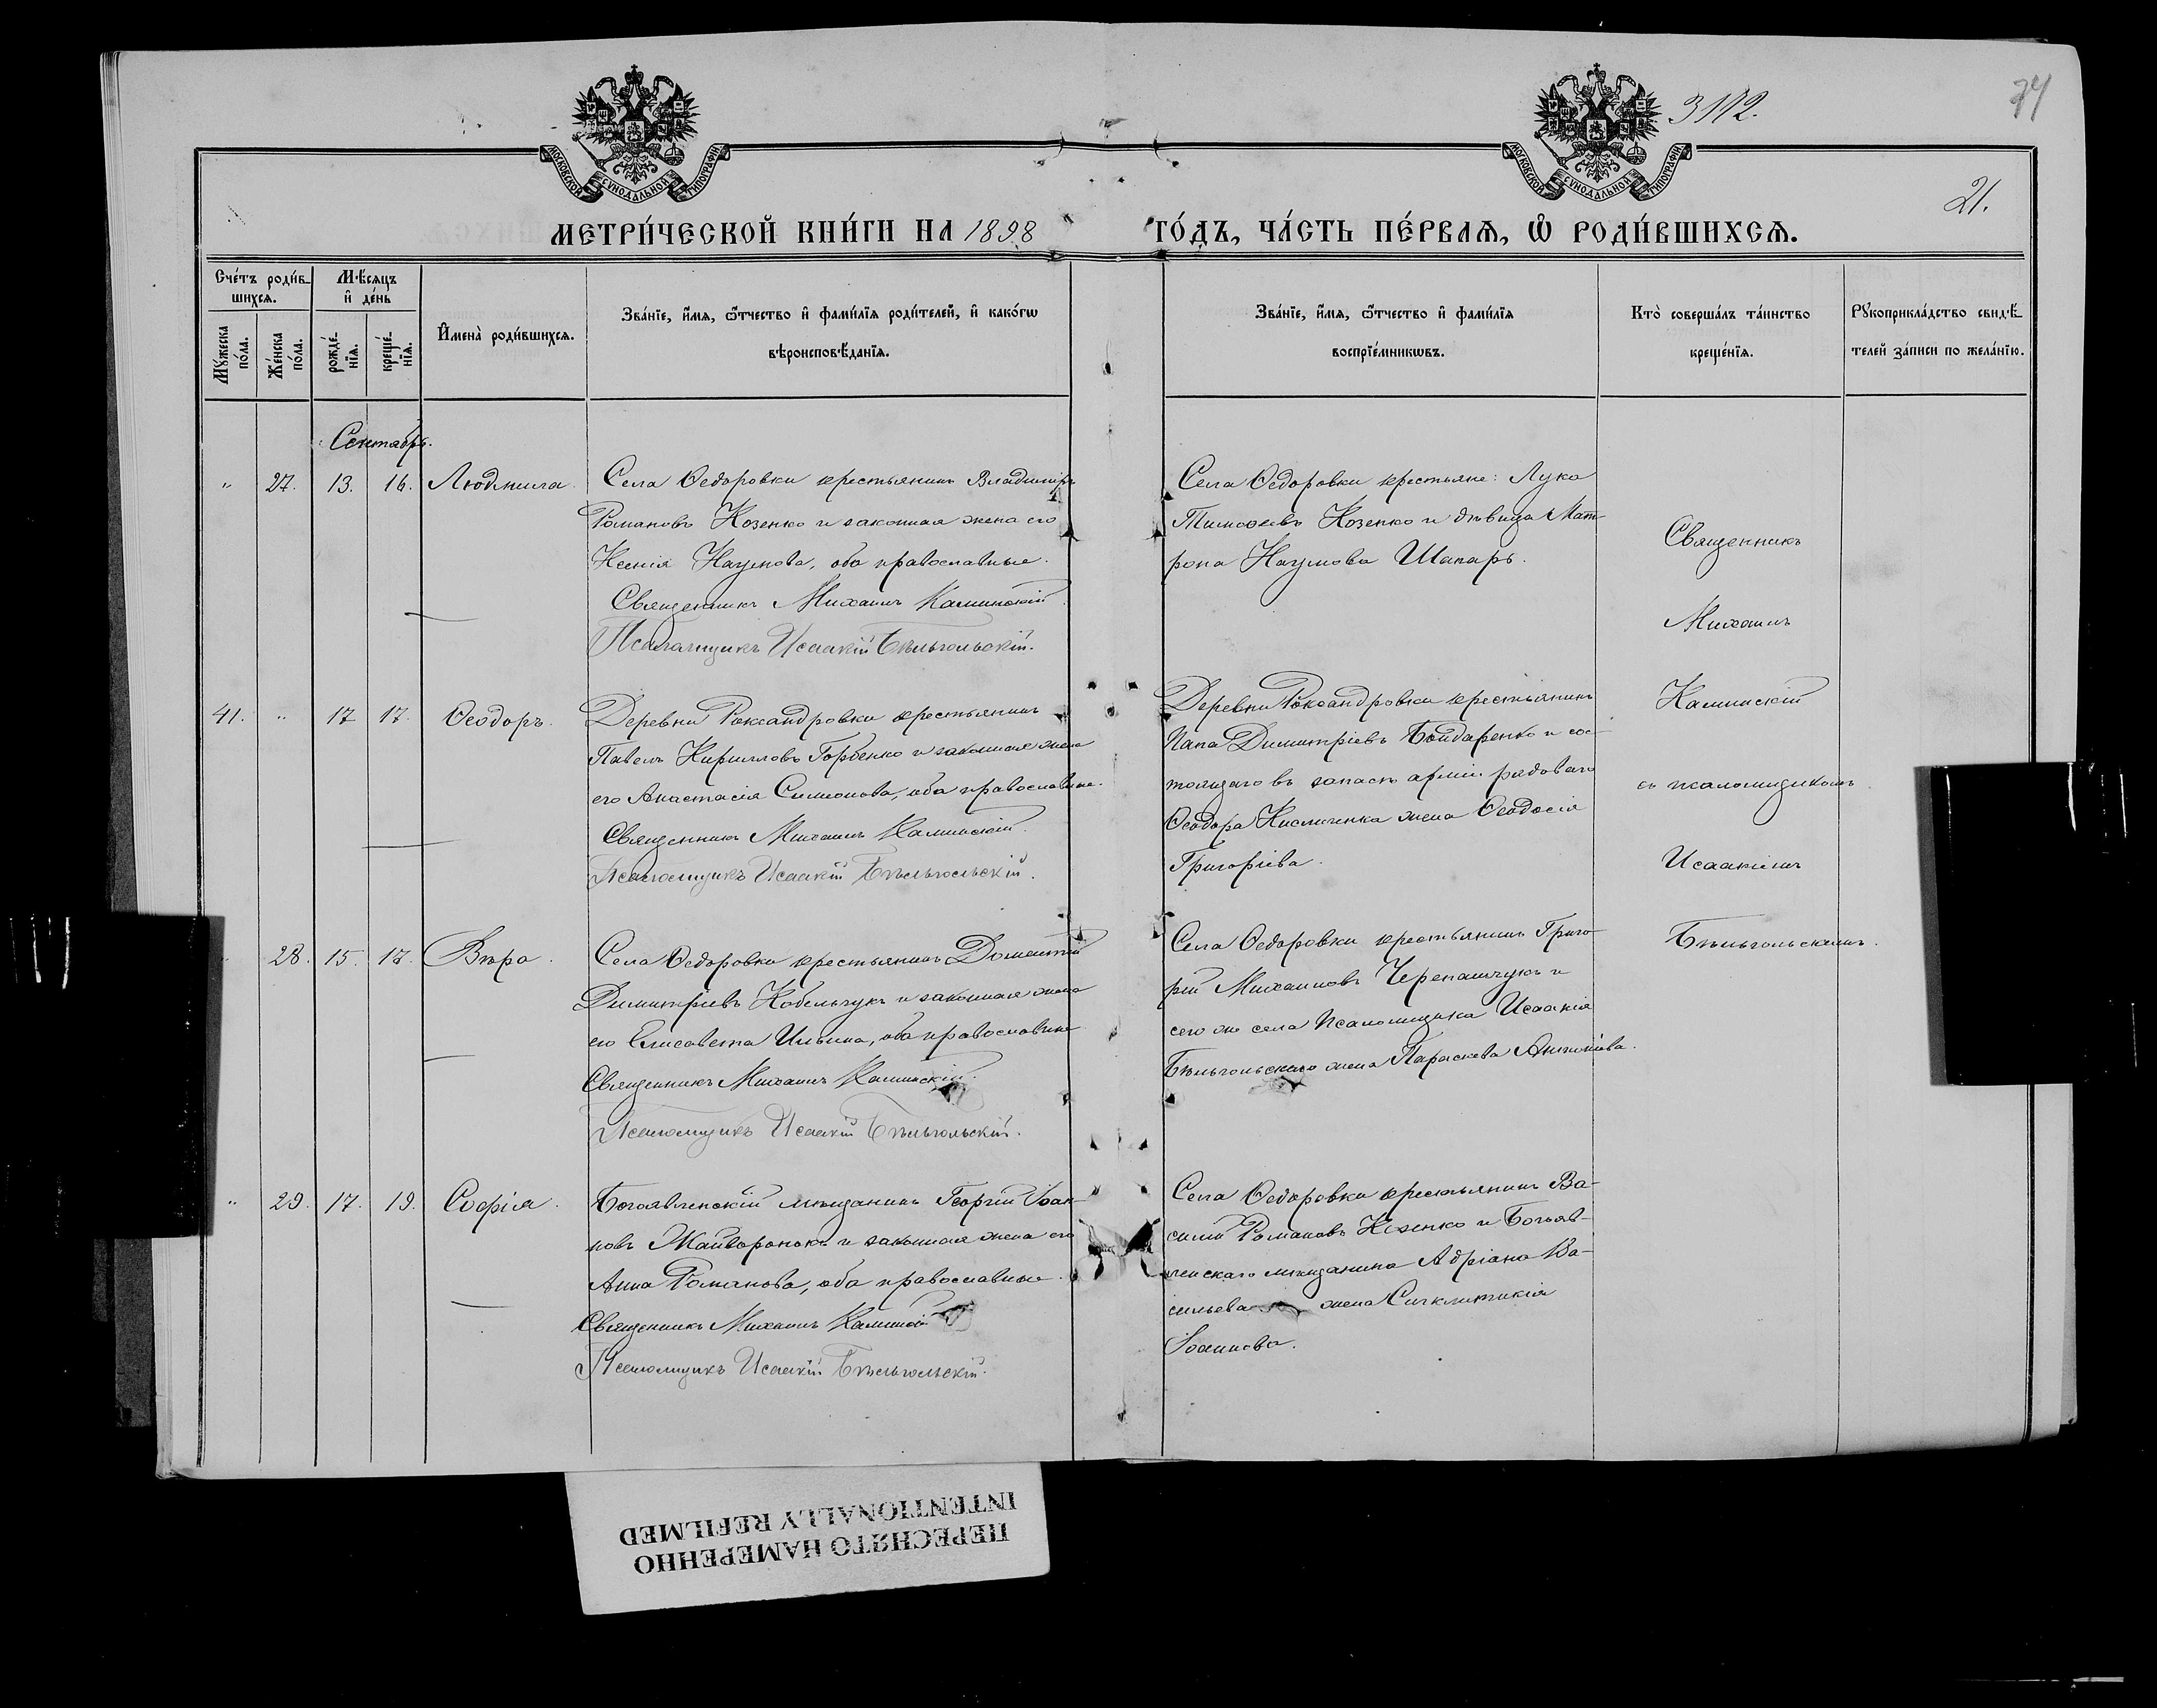 3112.
74
21.
МОСКОВСКОЙ СѴНОДАЛЬНОЙ ТИПОГРАФІИ
МОСКОВСКОЙ СѴНОДАЛЬНОЙ ТИПОГРАФІИ
МЕТРИ́ЧЕСКОЙ КНИ́ГИ НА 1898 ГО́ДЪ, ЧА́СТЬ ПЕ́РВАѦ, Ѡ҆ РОДИ́ВШИХСѦ.
Сче́тъ роди́в-
шихся.
Мꙋ́жеска
по́ла.
Же́нска
по́ла.
Мѣ́сяцъ
и҆ де́нь
рожде́-
нїя.
креще́-
нїя.
И҆мена̀ роди́вшихся.
Зва́нїе, и҆́мя, ѻ҆́тчество и҆ фами́лїя роди́телей, и҆ како́гѡ
вѣроисповѣ́данїя.
Зва́нїе, и҆́мя, ѻ҆́тчество и҆ фами́лїя
воспрїе́мникѡвъ.
Кто̀ соверша́лъ та́инство
креще́нїя.
Рꙋкоприкла́дство свидѣ́-
телей за́писи по жела́нїю.
Сентябрь.
" 27. 13. 16. Людмила.
Села Ѳедоровки крестьянинъ Владиміръ
Романовъ Козенко и законная жена его
Ксенія Наумова, оба православные.
Священникъ Михаилъ Калинскій
Псаломщикъ Исаакій Бѣльгольскій.
Села Ѳедоровки крестьяне: Лука
Тимоѳеевъ Козенко и дѣвица Мат-
рона Наумова Шапарь.
Священникъ
Михаилъ
Калинскій
съ псаломщикомъ
Исаакіемъ
Бѣльгольскимъ.
41. " 17 17. Ѳеодоръ.
Деревни Роксандровки крестьянинъ
Павелъ Кирилловъ Горбенко и законная жена
его Анастасія Симонова, оба православные.
Священникъ Михаилъ Калинскій.
Псаломщикъ Исаакій Бѣльгольскій.
Деревни Роксандровки крестьянинъ
Димитріевъ Бондаренко и сос-
тоящаго въ запасѣ арміи рядоваго
Ѳеодора Кисличенка жена Ѳеодосія
Григоріева.
" 28. 15. 17. Вѣра.
Села Ѳедоровки крестьянинъ Дометій
Димитріевъ Кобельчукъ и законная жена
его Елисавета Ильина, оба православные
Священникъ Михаилъ Калинскій.
Псаломщикъ Исаакій Бѣльгольскій.
Села Ѳедоровки крестьянинъ Григо-
рій Михаиловъ Черепащукъ и
сего же села псаломщика Исаакія
Бѣльгольскаго жена Параскева Антоніева.
" 29. 17. 19. Софія.
Богоявленскій мѣщанинъ Георгій Іоан-
новъ Жайворонокъ и законная жена его
Анна Романова, оба православные.
Священникъ Михаилъ Калинскій
Псаломщикъ Исаакій Бѣльгольскій.
Села Ѳедоровки крестьянинъ Ва-
силій Романовъ Козенко и Богояв-
ленскаго мѣщанина Адріана Ва-
сильева жена Синклитикія
Іоаннова.
ПЕРЕСНЯТО НАМЕРЕННО
INTENTIONALLY REFILMED